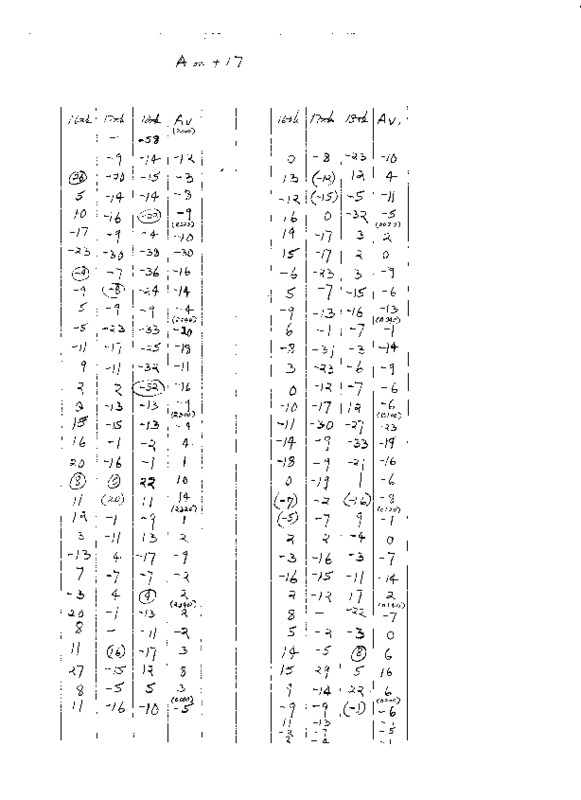 A on + 17
16th 17th 18th Av
(2000)
- -58
-9 -14 -12
-20 -15 -3
5 -14 -14 -8
10 -16 -9
-17 -9 -4 -10
-23 -30 -38 -30
-7 -36 -16
-9 (-8) -24 -14
5 -9 -9 -4
-5 -23 -33 -20
-11 -17 -25 -18
9 -11 -32 -11
2 2 (-52) -16
-13 -13 -9
15 -15 -13 -4
16 -1 -2 4
20 -16 -1 1
(8) (8) 22 10
11 (20) 11 14
-1 -9 1
3 -11 13 2
-13 4 -17 -9
7 -7 -7 -2
-3 4 (9) 2
20 -1 -13 2
8 - -11 -2
11 (16) -17 3
27 -15 12 8
8 -5 5 3
11 -16 -10 -5
16th 17th 18th Av.
0 -8 -23 -10
13 (-12) 12 4
-12 (-15) -5 -11
16 0 -32 -5
19 -17 3 2
15 -17 2 0
-6 -23 3 -9
5 -7 -15 -6
-9 -13 -16 -13
6 -1 -7 -1
-8 -31 -3 -14
3 -23 -6 -9
0 -12 -7 -6
-10 -17 12 -6
-11 -30 -27 -23
-14 -9 -33 -19
-18 -9 -21 -16
0 -19 1 -6
(-7) -2 (-16) -8
(-5) -7 9 -1
2 2 -4 0
-3 -16 -3 -7
-16 -15 -11 -14
2 -12 17 2
8 - -22 -7
5 -2 -3 0
14 -5 (8) 6
15 29 5 16
9 -14 22 6
-9 -9 (-1) -6
11 -13
-3 -7 -5
2